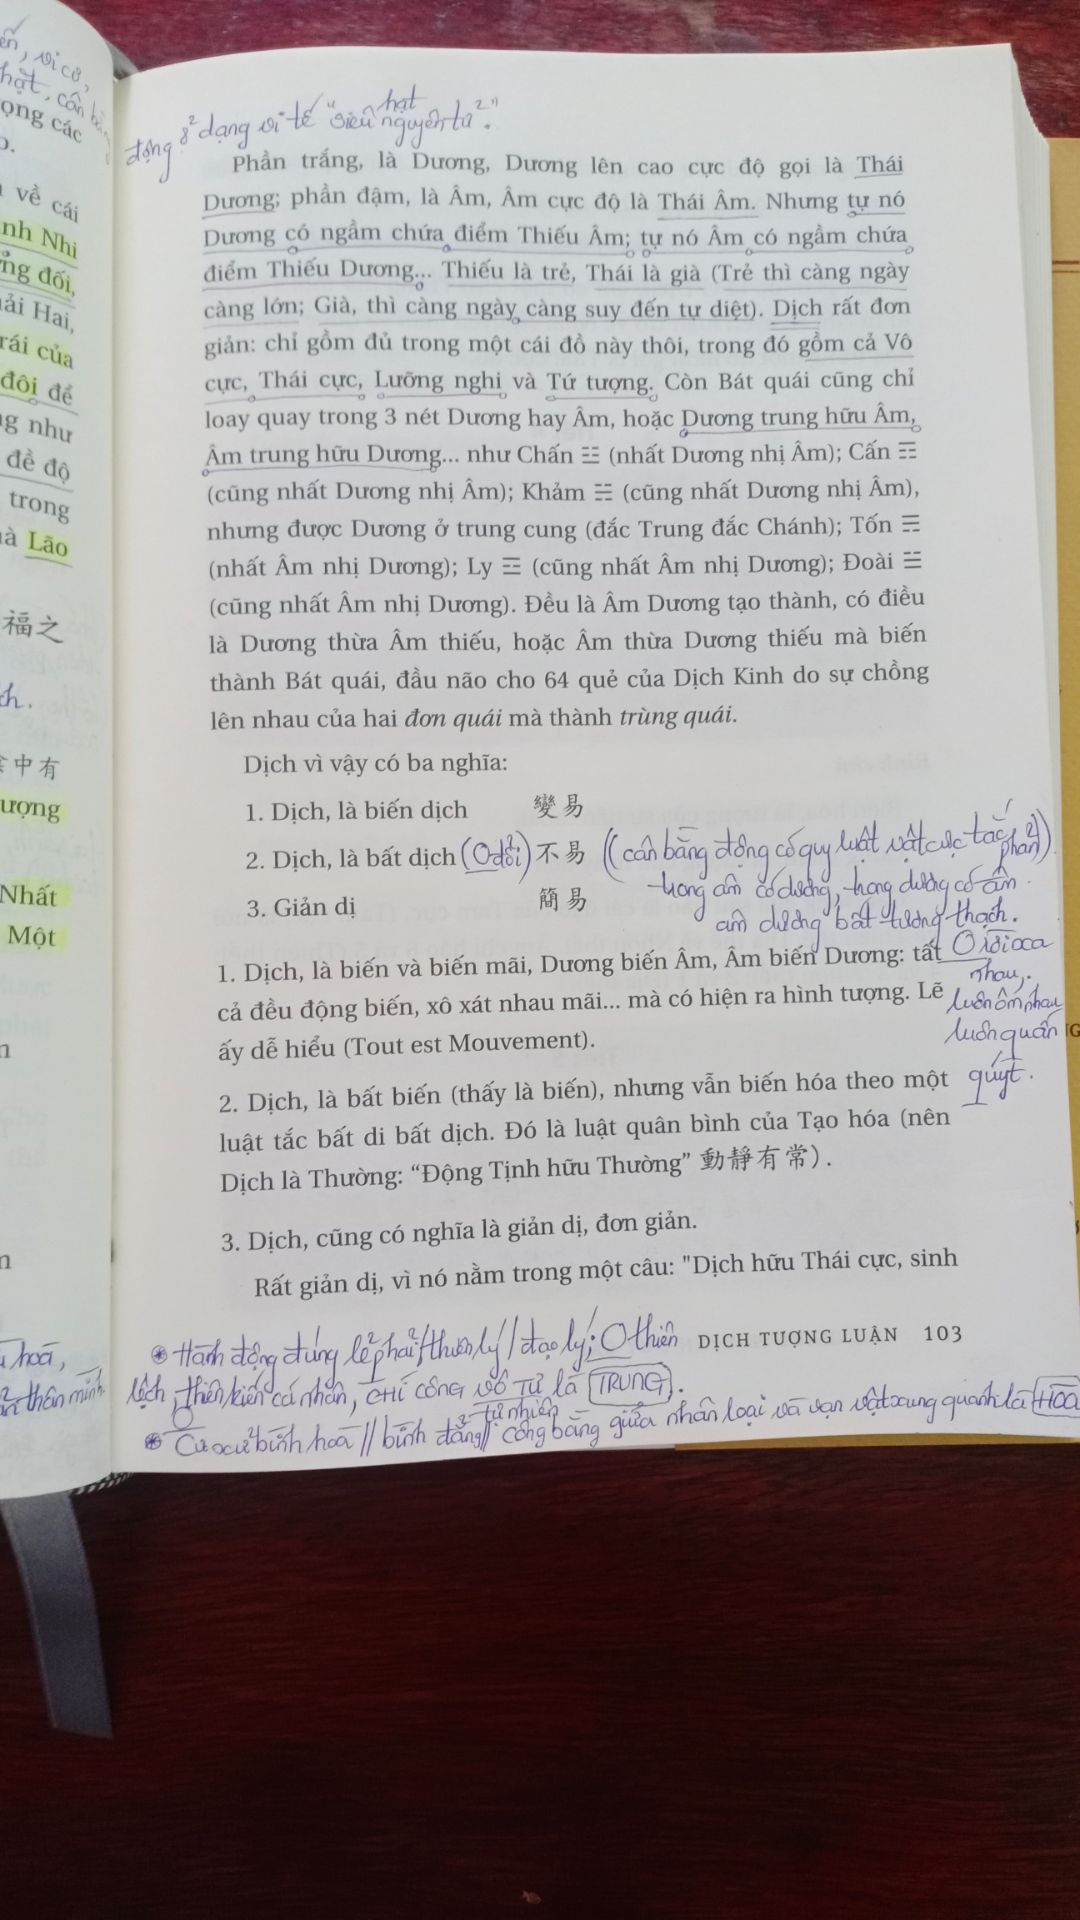 ến, vi cơ,
hạt, cân bằng
ọng các
o.
n về cái
nh Nhi
ng đối,
ải Hai,
rái của
đôi để
ng như
đề độ
trong
à Lão
福之
ch.
中有
ượng
Nhất
Một
u hoà,
thân minh
động ở dạng vi tế "siêu hạt nguyên tử".
Phần trắng, là Dương, Dương lên cao cực độ gọi là Thái
Dương; phần đậm, là Âm, Âm cực độ là Thái Âm. Nhưng tự nó
Dương có ngầm chứa điểm Thiếu Âm; tự nó Âm có ngầm chứa
điểm Thiếu Dương... Thiếu là trẻ, Thái là già (Trẻ thì càng ngày
càng lớn; Già, thì càng ngày càng suy đến tự diệt). Dịch rất đơn
giản: chỉ gồm đủ trong một cái đồ này thôi, trong đó gồm cả Vô
cực, Thái cực, Lưỡng nghi và Tứ tượng. Còn Bát quái cũng chỉ
loay quay trong 3 nét Dương hay Âm, hoặc Dương trung hữu Âm,
Âm trung hữu Dương... như Chấn ☳ (nhất Dương nhị Âm); Cấn ☶
(cũng nhất Dương nhị Âm); Khảm ☵ (cũng nhất Dương nhị Âm),
nhưng được Dương ở trung cung (đắc Trung đắc Chánh); Tốn ☴
(nhất Âm nhị Dương); Ly ☲ (cũng nhất Âm nhị Dương); Đoài ☱
(cũng nhất Âm nhị Dương). Đều là Âm Dương tạo thành, có điều
là Dương thừa Âm thiếu, hoặc Âm thừa Dương thiếu mà biến
thành Bát quái, đầu não cho 64 quẻ của Dịch Kinh do sự chồng
lên nhau của hai đơn quái mà thành trùng quái.
Dịch vì vậy có ba nghĩa:
1. Dịch, là biến dịch 變易
2. Dịch, là bất dịch (O đổi) 不易 ((cân bằng động có quy luật vật cực tắc phản))
trong âm có dương, trong dương có âm.
3. Giản dị 簡易
âm dương bất tương thạch.
O rời xa
nhau,
luôn ôm nhau
luôn quấn
quýt.
1. Dịch, là biến và biến mãi, Dương biến Âm, Âm biến Dương: tất
cả đều động biến, xô xát nhau mãi... mà có hiện ra hình tượng. Lẽ
ấy dễ hiểu (Tout est Mouvement).
2. Dịch, là bất biến (thấy là biến), nhưng vẫn biến hóa theo một
luật tắc bất di bất dịch. Đó là luật quân bình của Tạo hóa (nên
Dịch là Thường: “Động Tịnh hữu Thường” 動靜有常).
3. Dịch, cũng có nghĩa là giản dị, đơn giản.
Rất giản dị, vì nó nằm trong một câu: "Dịch hữu Thái cực, sinh
DỊCH TƯỢNG LUẬN 103
Hành động đúng lẽ phải/thiên lý/đạo lý; O thiên
lệch, thiên kiến cá nhân, CHÍ CÔNG VÔ TƯ là TRUNG.
Cư xử bình hoà // bình đẳng // tự nhiên công bằng giữa nhân loại và vạn vật xung quanh là HOÀ